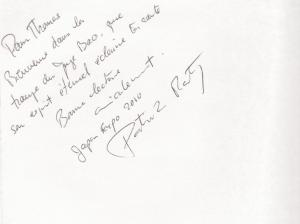 Pour Thomas
Bienvenue dans la
frange du Juge Bao, que
son esprit éternel éclaire ta route
Bonne lecture
amicalement.
Japan Expo 2010
Patrick Marty